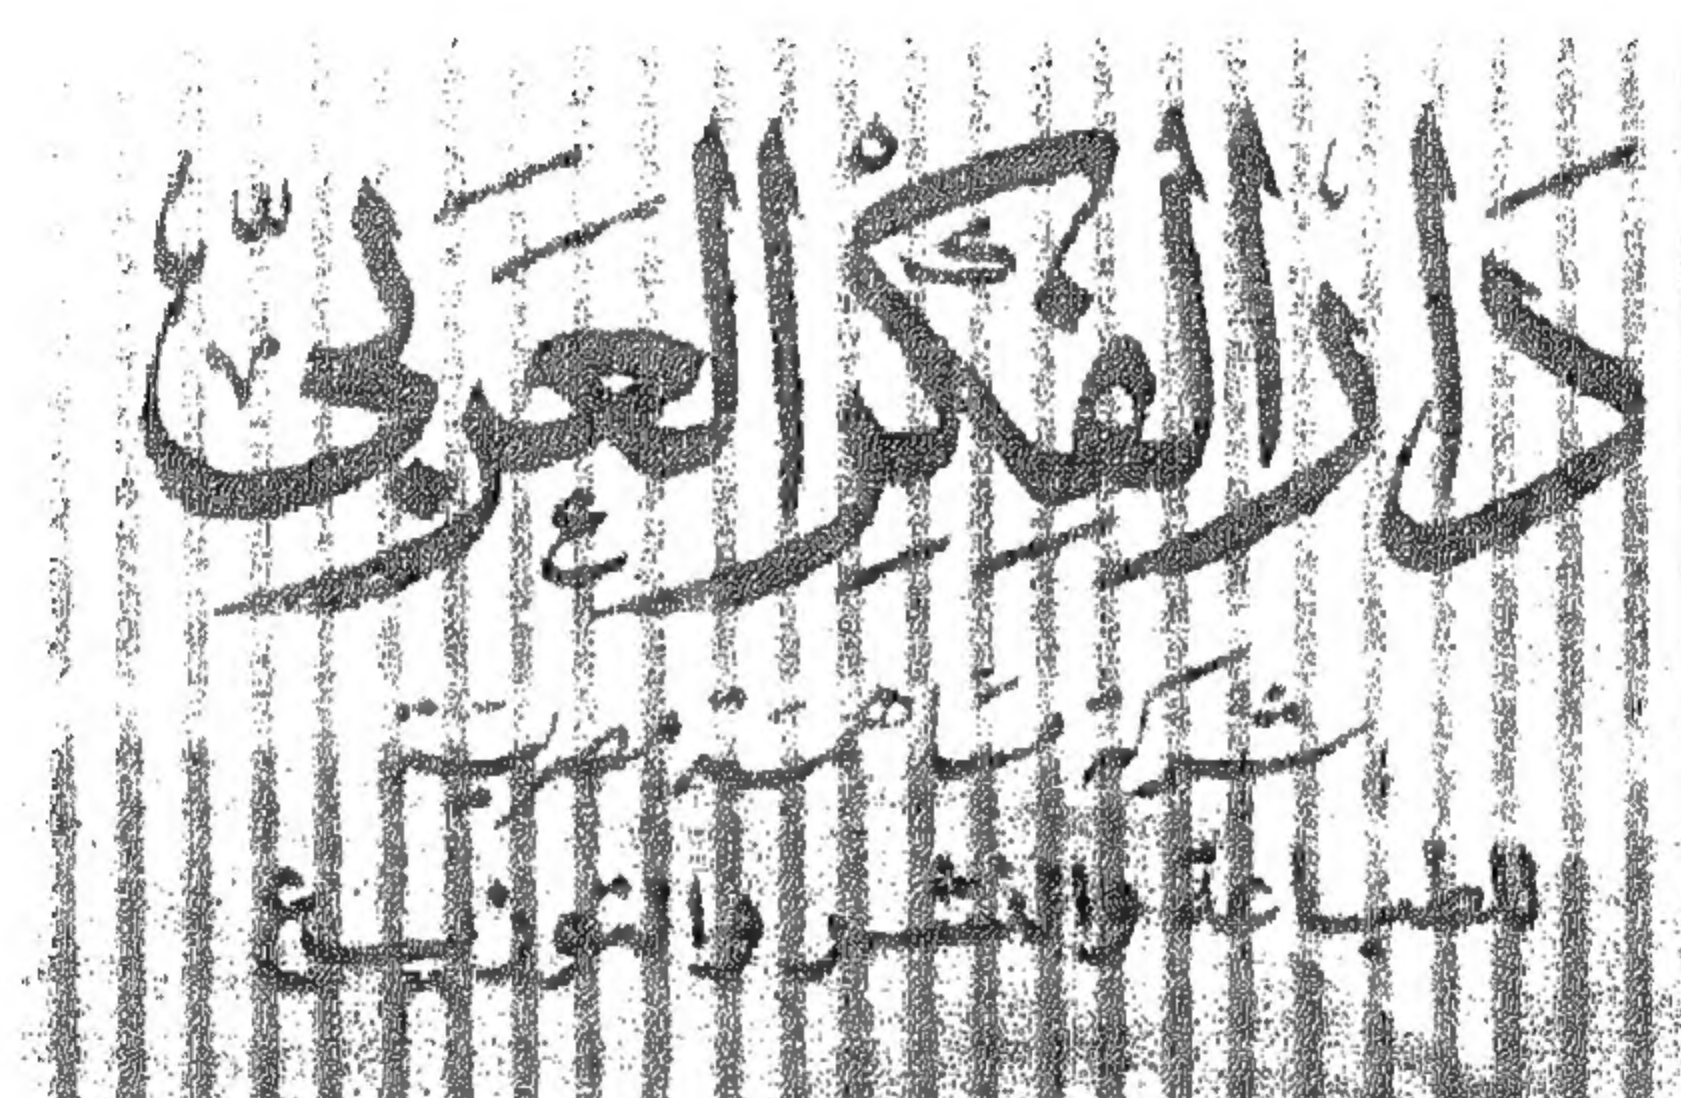 دار الفكر العربي
شركة مصرية
للطباعة والنشر والتوزيع